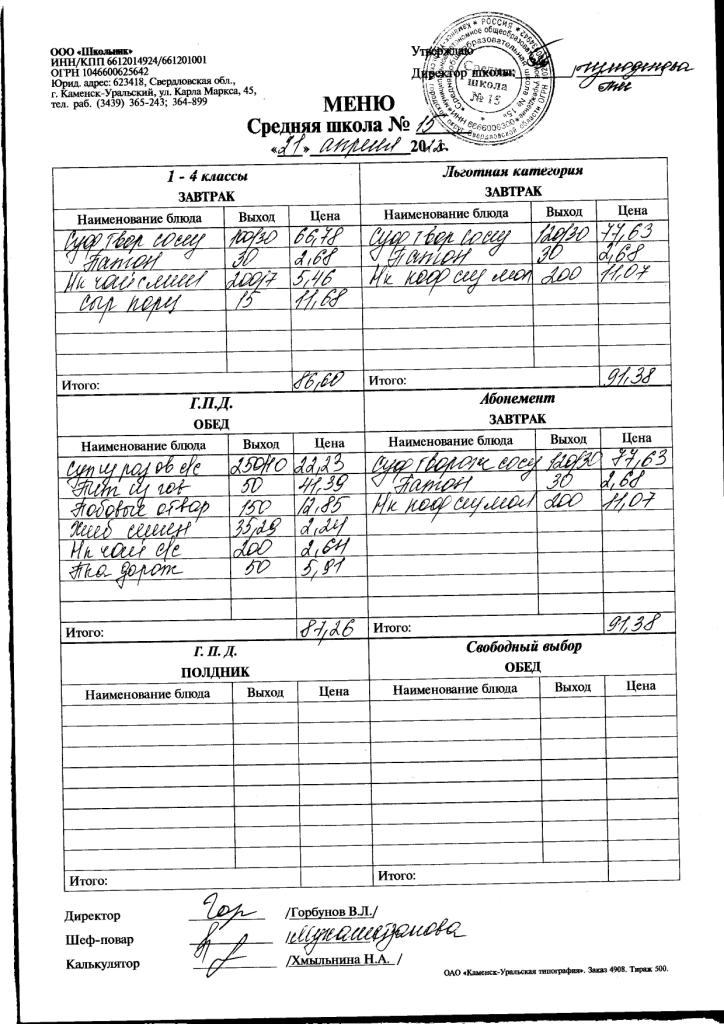 ООО «Школьник»
ИНН/КПП 6612014924/661201001
ОГРН 1046600625642
Юрид. адрес: 623418, Свердловская обл.,
г. Каменск-Уральский, ул. Карла Маркса, 45,
тел. раб. (3439) 365-243; 364-899
Утверждаю
Директор школы:
Средняя
школа
№ 15
МЕНЮ
Средняя школа № 15
«21» апреля 202 г.
1 - 4 классы
ЗАВТРАК
Наименование блюда Выход Цена
Суф твор сосу 100/30 66,78
Батон 30 2,68
Нк чай с лим 200/7 5,46
Сыр порц 15 11,68
Итого: 86,60
Льготная категория
ЗАВТРАК
Наименование блюда Выход Цена
Суф твор сосу 120/30 77,63
Батон 30 2,68
Нк коф сгу мол 200 11,07
Итого: 91,38
Г.П.Д.
ОБЕД
Наименование блюда Выход Цена
250/10 22,23
50 41,39
Бобовые отвар 150 12,85
Хлеб 35,29 2,24
Нк чай с/с 200 2,64
дорож 50 5,91
Итого: 87,26
Абонемент
ЗАВТРАК
Наименование блюда Выход Цена
Суф творожн сосу 120/30 77,63
Батон 30 2,68
Нк коф сгу мол 200 11,07
Итого: 91,38
Г. П. Д.
ПОЛДНИК
Наименование блюда Выход Цена
Итого:
Свободный выбор
ОБЕД
Наименование блюда Выход Цена
Итого:
Директор /Горбунов В.Л./
Шеф-повар
Калькулятор /Хмыльнина Н.А. /
ОАО «Каменск-Уральская типография». Заказ 4908. Тираж 500.